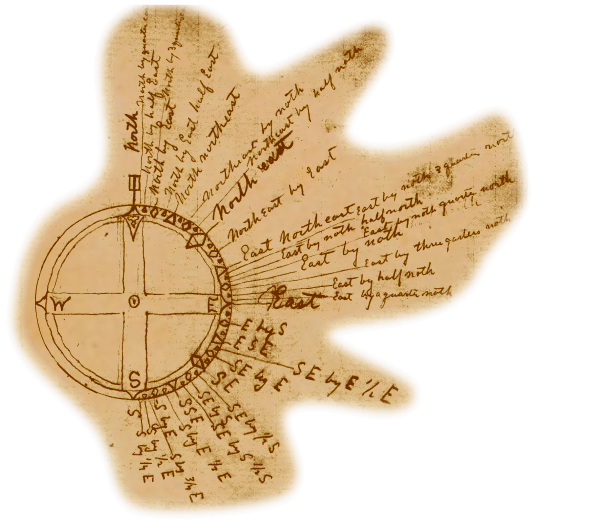 North
North by quarter
North by half East
North by 3 quarters
North by East
North by East half East
North northeast
Northeast by noth
Northeast by half noth
North east
North East by East
East North east
East by noth 3 quarters noth
East by noth half noth
East by noth quarter noth
East by noth
East by three quarters noth
East by half noth
East by a quarter noth
East
E by S
E S E
SE by E 1/2 E
SE by E
SE
SE by 1/2 S
SE by S 1/2 S
SE by S
SSE
S by E 1/2 E
S by 3/4 E
S by E
S by 1/2 E
S by 1/4 E
S
W
E
S